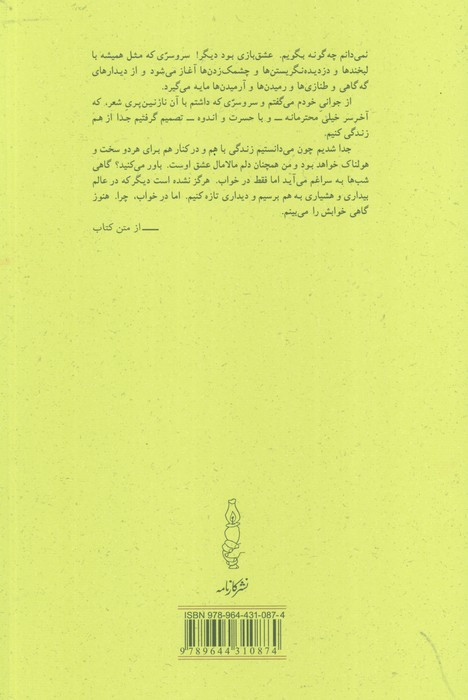 نمی‌دانم چه‌گونه بگویم. عشق‌بازی بود دیگر! سروسرّی که مثل همیشه با
لبخندها و دزدیده‌نگریستن‌ها و چشمک‌زدن‌ها آغاز می‌شود و از دیدارهای
گه‌گاهی و طنازی‌ها و رمیدن‌ها و آرمیدن‌ها مایه می‌گیرد.
از جوانی خودم می‌گفتم و سروسرّی که داشتم با آن نازنین‌پری شعر، که
آخرسر خیلی محترمانه ــ و با حسرت و اندوه ــ تصمیم گرفتیم جدا از هم
زندگی کنیم.
جدا شدیم چون می‌دانستیم زندگی با هم و در کنار هم برای هردو سخت و
هولناک خواهد بود و من همچنان دلم مالامال عشق اوست. باور می‌کنید؟ گاهی
شب‌ها به سراغم می‌آید اما فقط در خواب. هرگز نشده است دیگر که در عالم
بیداری و هشیاری به هم برسیم و دیداری تازه کنیم. اما در خواب، چرا. هنوز
گاهی خوابش را می‌بینم.
ــــ از متن کتاب
نشر کارنامه
ISBN 978-964-431-087-4
9789644310874